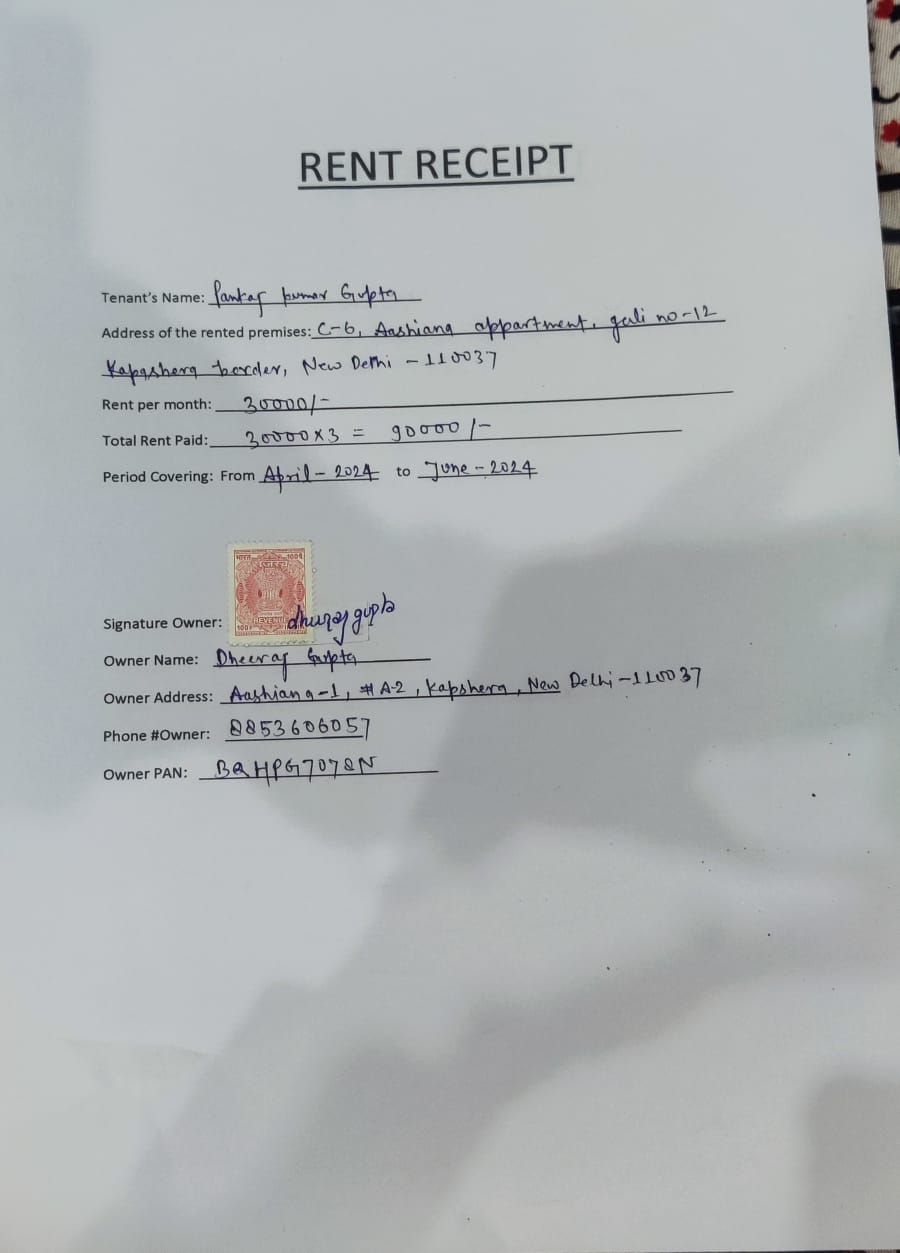 RENT RECEIPT
Tenant's Name: Pankaj kumar Gupta
Address of the rented premises: C-6, Aashiana appartment, gali no-12
Kapashera border, New Delhi - 110037
Rent per month: 30000/-
Total Rent Paid: 30000x3 = 90000/-
Period Covering: From April - 2024 to June - 2024
भारत
REVENUE
Signature Owner: dhuraj gupta
Owner Name: Dheeraj Gupta
Owner Address: Aashiana-1, # A-2, Kapshera, New Delhi - 110037
Phone #Owner: 8853606057
Owner PAN: BQHPG7078N